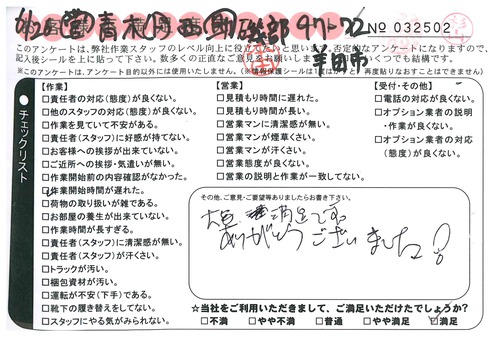 No 032502
半田市
このアンケートは、弊社作業スタッフのレベル向上に役立てたいと思います。否定的なアンケートになりますので、
記入後シールを上に貼って下さい。数多くの正直なご意見をお願いします
つでも結構です。
チェックリスト
【作業】
□責任者の対応(態度)が良くない。
□他のスタッフの対応(態度)が良くない。
□作業を見ていて不安がある。
□責任者(スタッフ)に好感が持てない。
□お客様への挨拶が出来ていない。
□ご近所への挨拶・気遣いが無い。
□作業開始前の内容確認がなかった。
□作業開始時間が遅れた。
□荷物の取り扱いが雑である。
□お部屋の養生が出来ていない。
□作業時間が長すぎる。
□責任者(スタッフ)に清潔感が無い。
□責任者(スタッフ)が汗くさい。
□トラックが汚い。
□梱包資材が汚い。
□運転が不安(下手)である。
□靴下の履き替えをしてない。
□スタッフにやる気がみられない。
【営業】
□見積もり時間に遅れた。
□見積もり時間が長い。
□営業マンに清潔感が無い。
□営業マンが煙草くさい。
□営業マンが汗くさい。
□営業態度が良くない。
□営業の説明と作業が一致してない。
【受付・その他】
□電話の対応が良くない。
□オプション業者の説明
・作業が良くない。
□オプション業者の対応
(態度)が良くない。
その他、ご意見・ご要望等ありましたらお書き下さい。
大変 満足です。
ありがとうございました!
☆当社をご利用いただきまして、ご満足いただけたでしょうか?
□不満 □やや不満 □普通 □やや満足 ☑満足